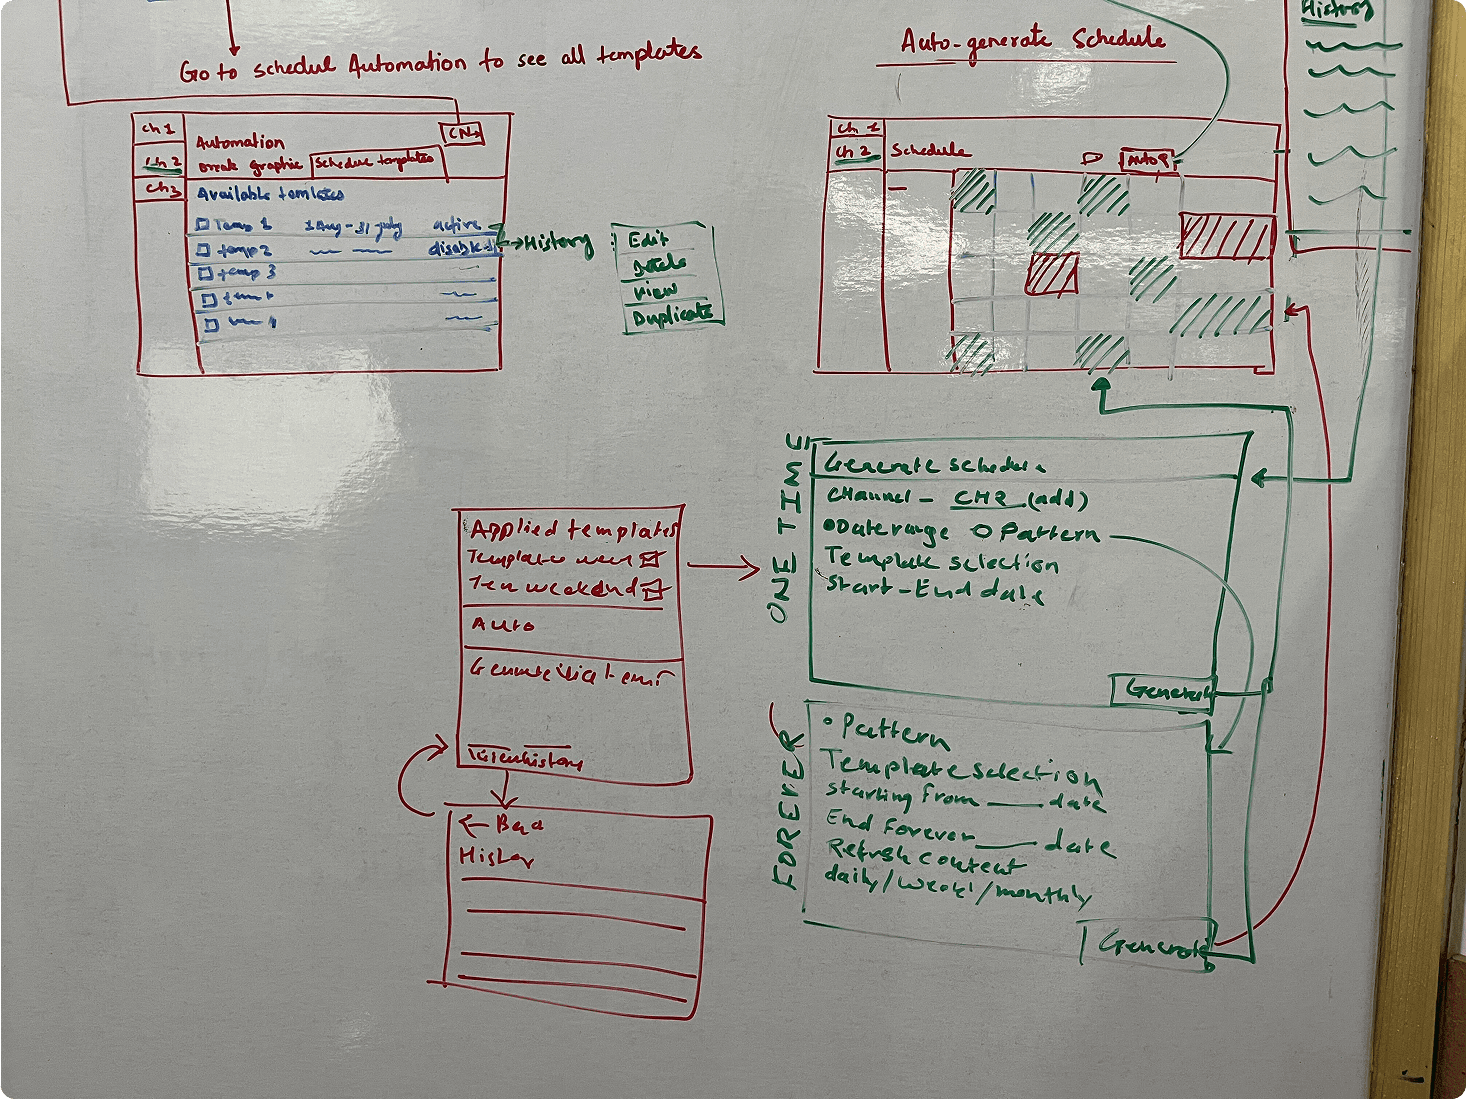 Go to schedul Automation to see all templates
Ch 1
Ch 2
Ch3
Automation
Break Graphic
Schedule templates
Available temlates
Temp 1 1 Aug - 31 july active
temp 2 disabled
temp 3
History
Edit
Details
View
Duplicate
Auto-generate Schedule
Ch 1
Ch 2
Schedule
Auto
History
Applied templates
Template week
Tem weekend
Auto
history
← Bac
Histor
ONE TIME
Generate schedule
CHannel - CH2 (add)
Date range Pattern
Template selection
Start-End date
Generate
FOREVER
Pattern
Template selection
starting from ___ date
End Forever ___ date
Refresh content
daily/week/monthly
Generate